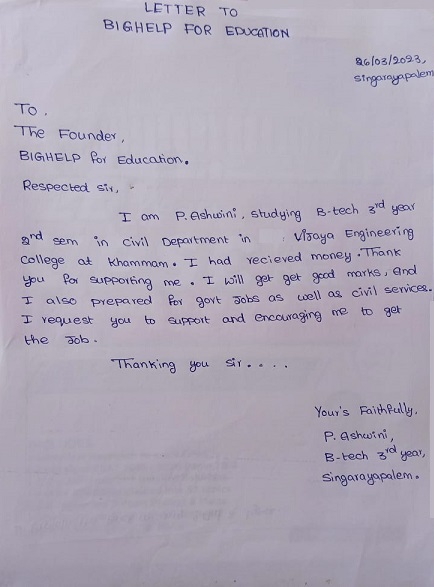 LETTER TO
BIGHELP FOR EDUCATION
26/03/2023,
Singarayapalem
To.
The Founder,
BIGHELP for Education.
Respected Sir,
I am P. Ashwini, studying B-tech 3rd year
2nd sem in civil Department in Vijaya Engineering
college at Khammam. I had recieved money. Thank
you for supporting me. I will get get good marks, and
I also prepared for govt Jobs as well as civil services.
I request you to support and encouraging me to get
the Job.
Thanking you sir....
Your's Faithfully,
P. Ashwini,
B-tech 3rd year,
Singarayapalem.